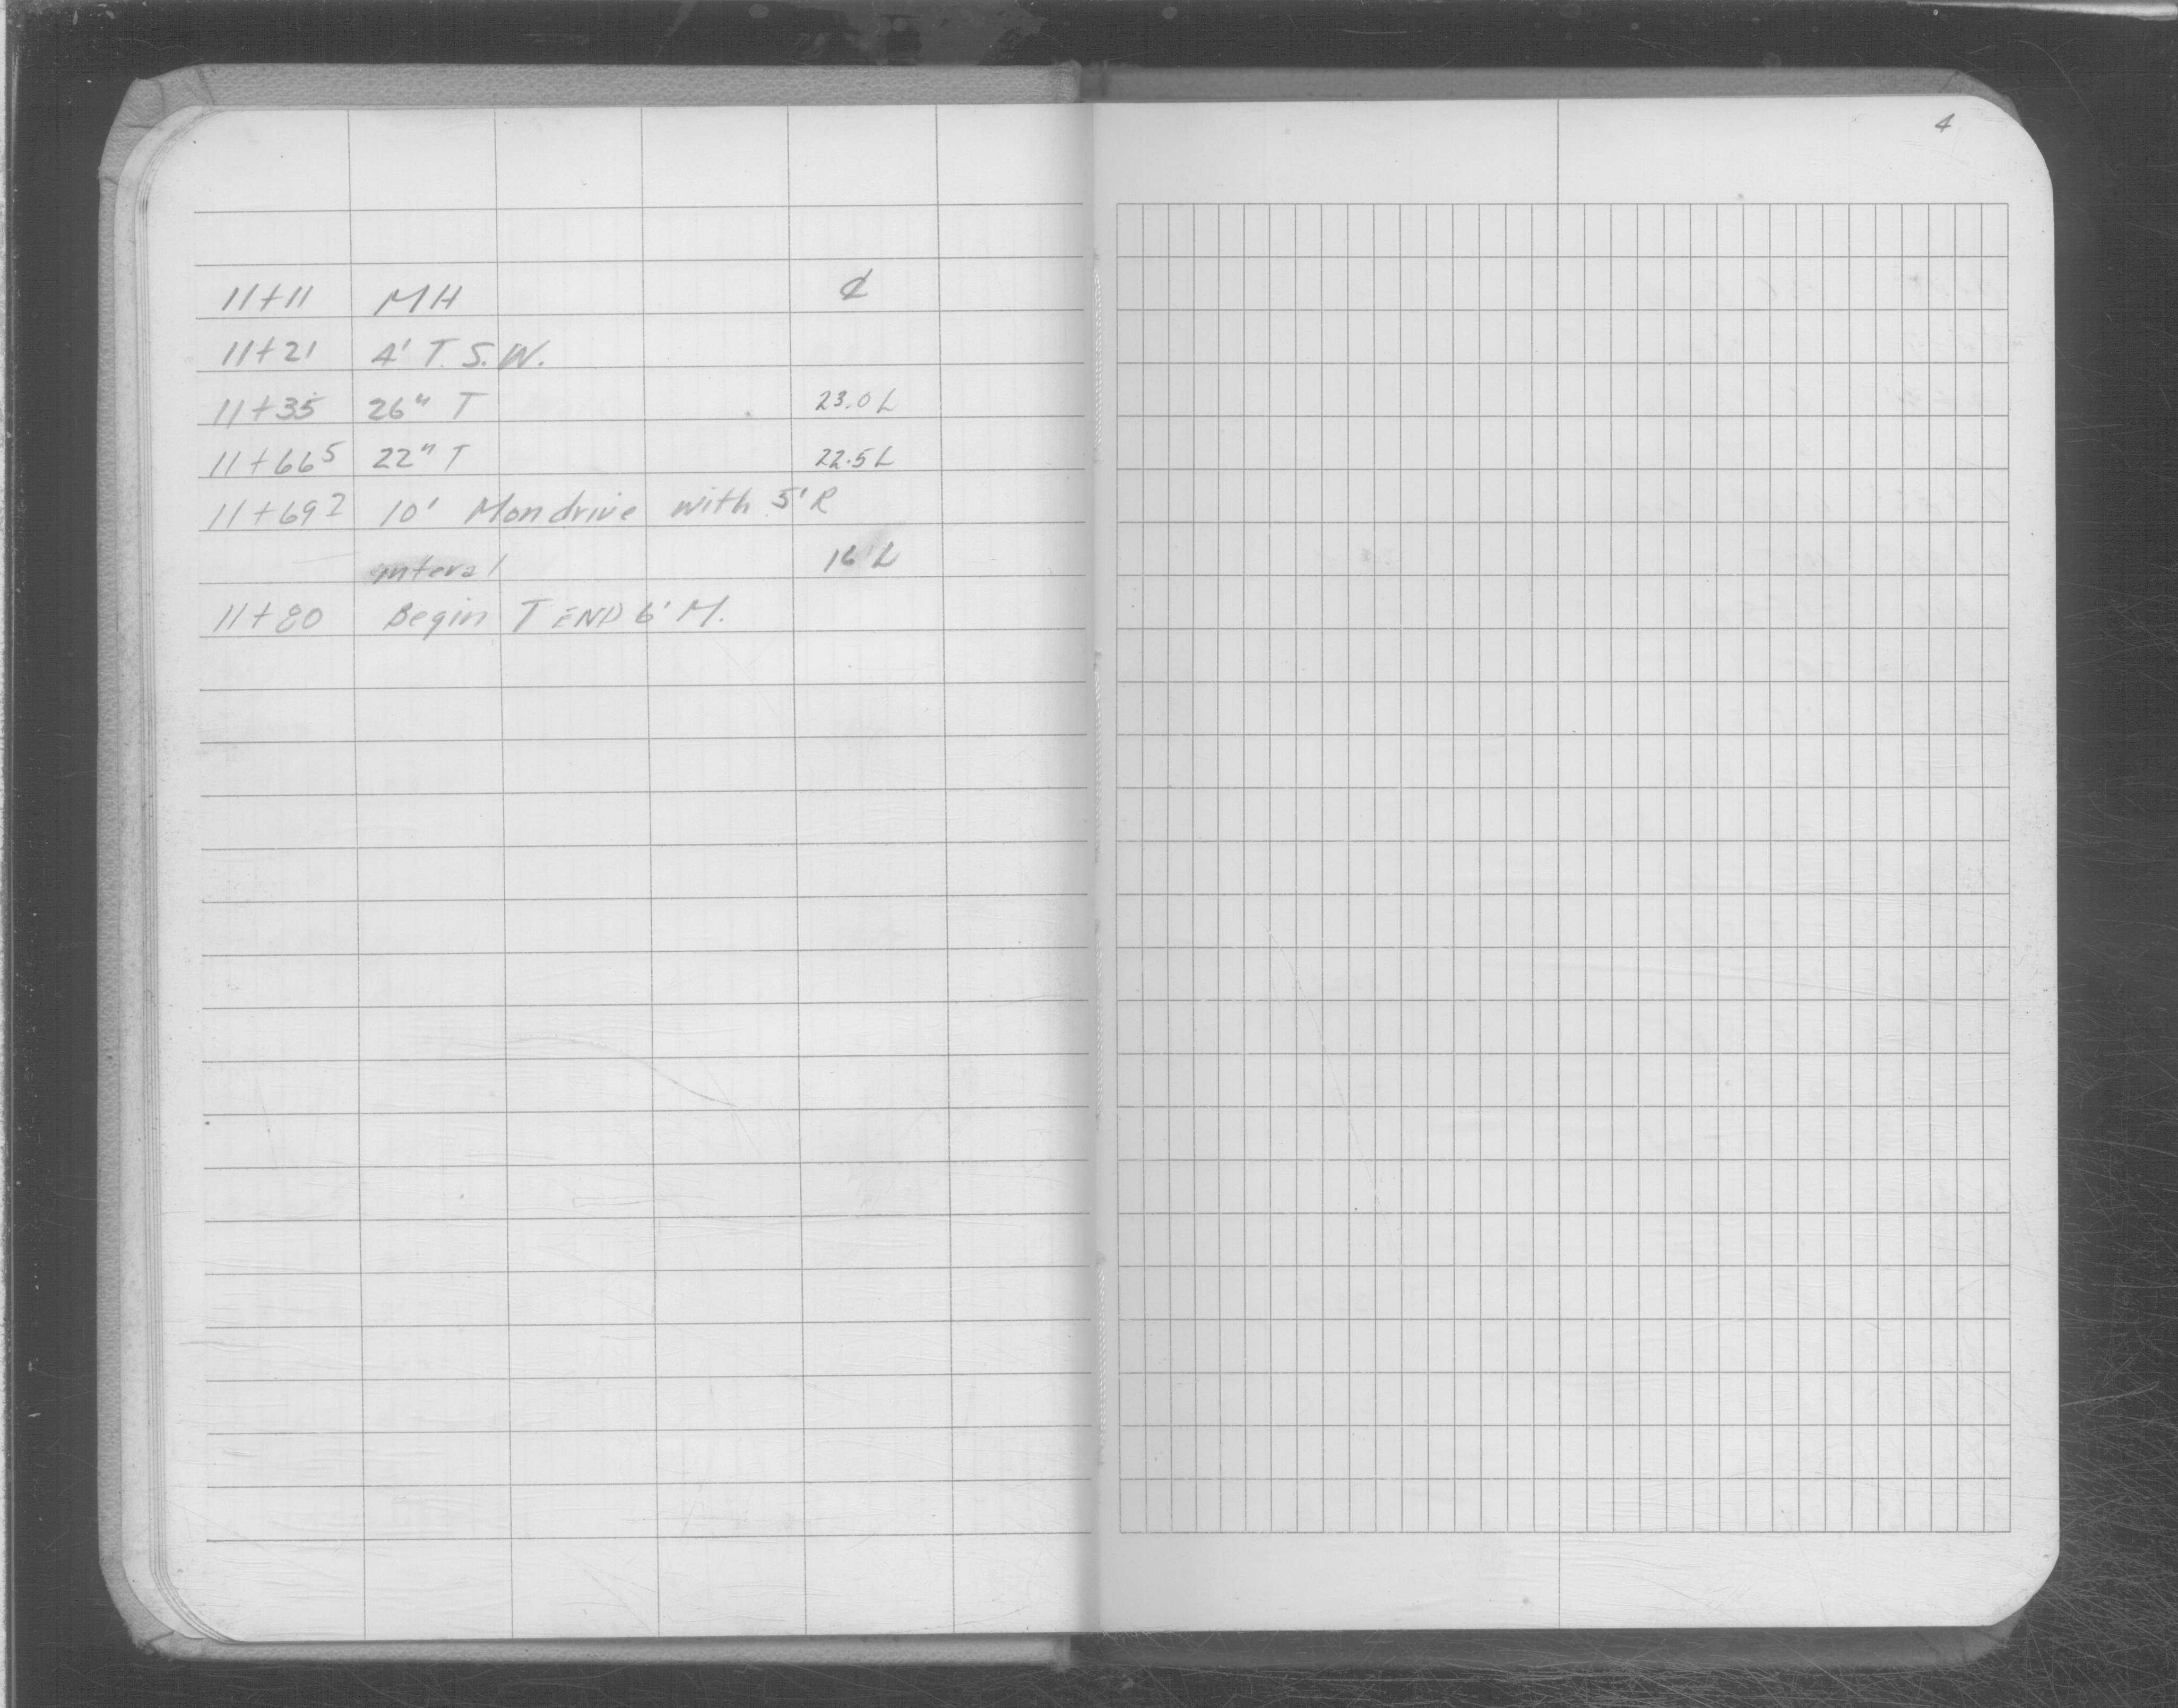 4
11+11 MH ℄
11+21 4' T. S. W.
11+35 26" T 23.0 L
11+66⁵ 22" T 22.5 L
11+69² 10' Mon drive with 5' R
interal 16' L
11+80 Begin T END 6' M.